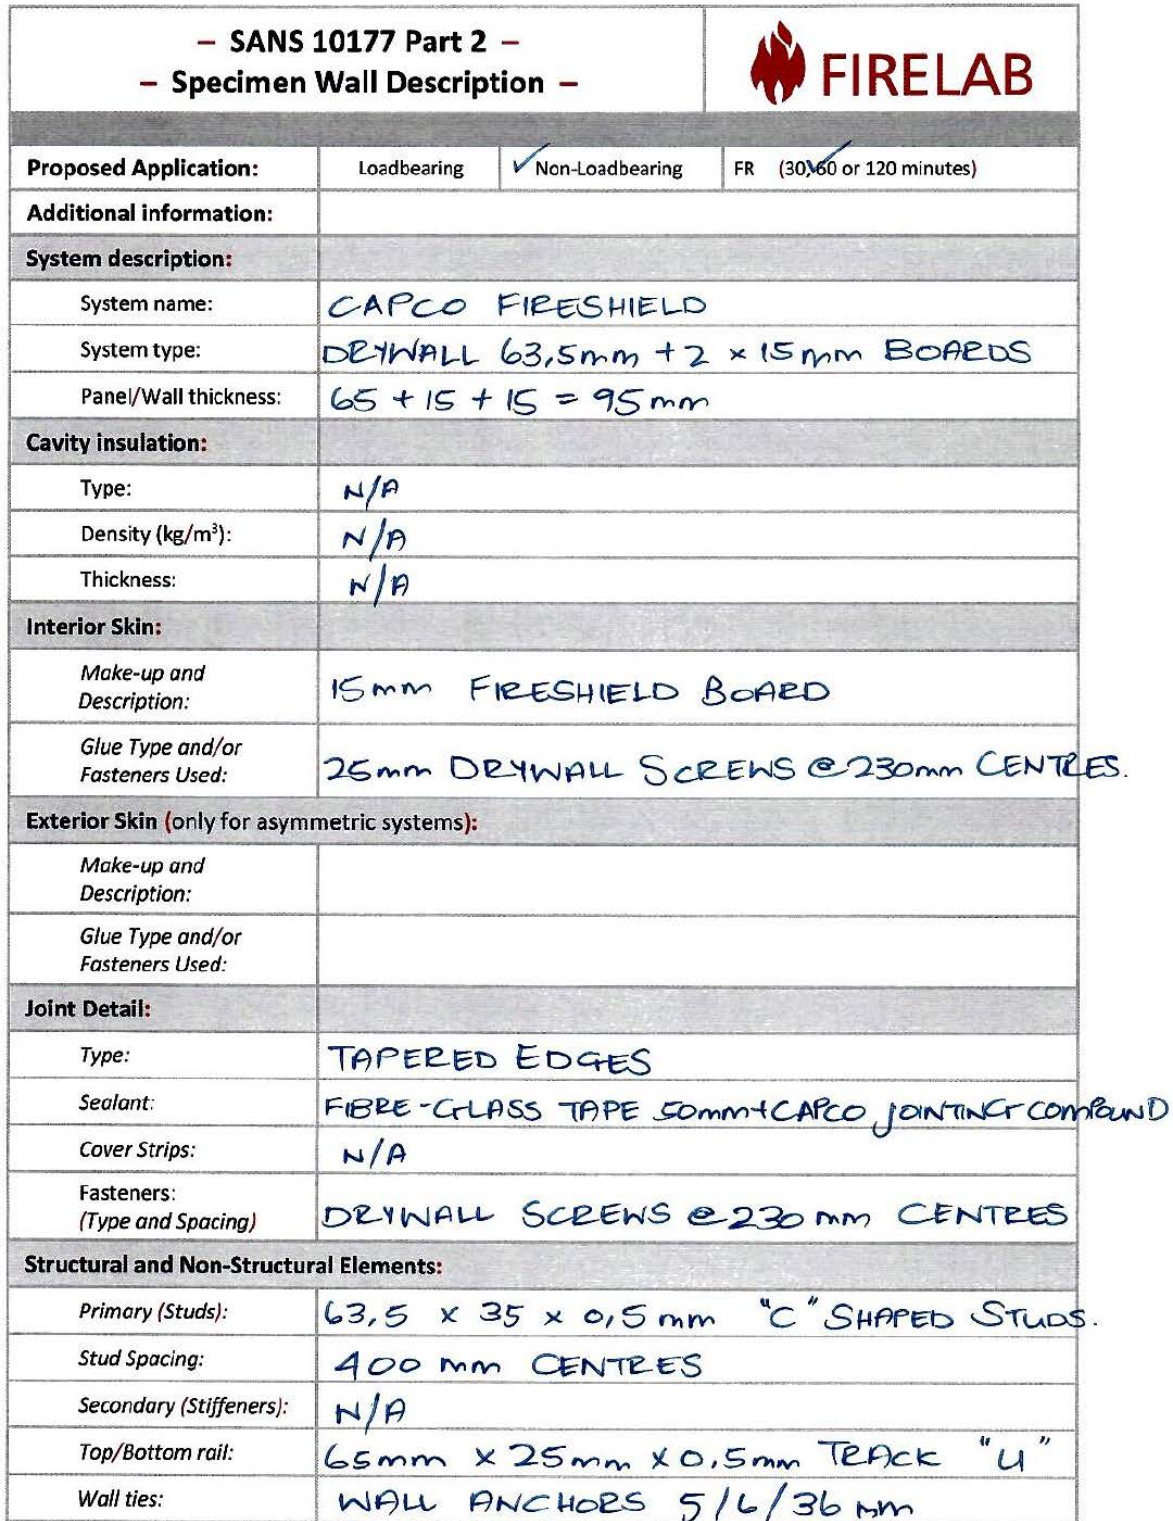 – SANS 10177 Part 2 –
– Specimen Wall Description –
FIRELAB
Proposed Application: Loadbearing ✓Non-Loadbearing FR (30,✓60 or 120 minutes)
Additional information:
System description:
System name: CAPCO FIRESHIELD
System type: DRYWALL 63,5mm + 2 x 15mm BOARDS
Panel/Wall thickness: 65 + 15 + 15 = 95mm
Cavity insulation:
Type: N/A
Density (kg/m³): N/A
Thickness: N/A
Interior Skin:
Make-up and
Description: 15mm FIRESHIELD BOARD
Glue Type and/or
Fasteners Used: 25mm DRYWALL SCREWS @ 230mm CENTRES.
Exterior Skin (only for asymmetric systems):
Make-up and
Description:
Glue Type and/or
Fasteners Used:
Joint Detail:
Type: TAPERED EDGES
Sealant: FIBRE-GLASS TAPE 50mm+CAPCO JOINTING COMPOUND
Cover Strips: N/A
Fasteners:
(Type and Spacing) DRYWALL SCREWS @ 230mm CENTRES
Structural and Non-Structural Elements:
Primary (Studs): 63,5 x 35 x 0,5mm "C" SHAPED STUDS.
Stud Spacing: 400 mm CENTRES
Secondary (Stiffeners): N/A
Top/Bottom rail: 65mm x 25mm x 0.5mm TRACK "U"
Wall ties: WALL ANCHORS 5/6/36 mm